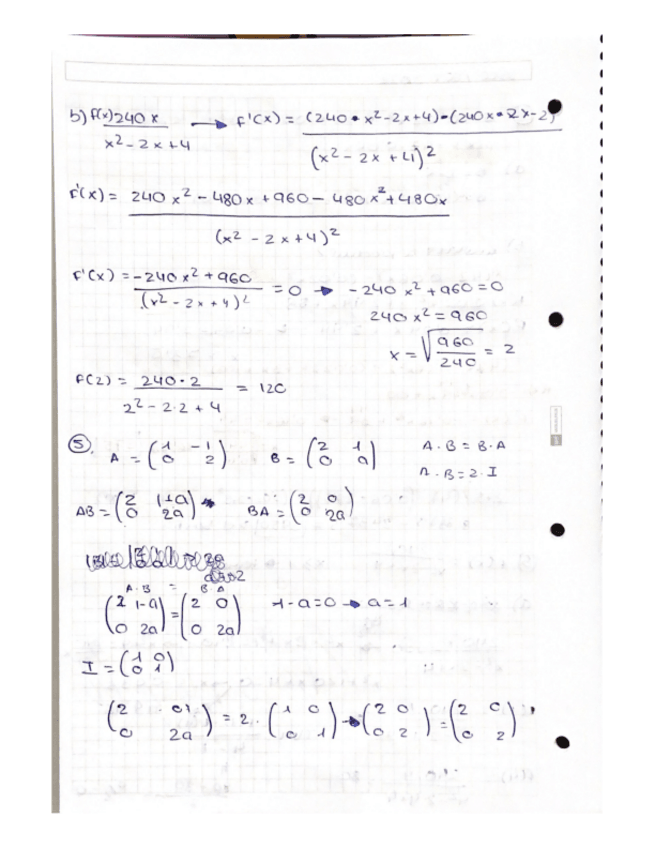 b) f(x) 240x / x² - 2x + 4 → f'(x) = (240 • x² - 2x + 4) - (240x • 2x - 2) / (x² - 2x + 4)²
f'(x) = 240x² - 480x + 960 - 480x² + 480x / (x² - 2x + 4)²
f'(x) = -240x² + 960 / (x² - 2x + 4)² = 0 → -240x² + 960 = 0
240x² = 960
x = √(960/240) = 2
f(2) = 240·2 / 2² - 2·2 + 4 = 120
⑤. A = (1 -1 / 0 2) B = (2 1 / 0 a) A·B = B·A
A·B = 2·I
AB = (2 1-a / 0 2a) → BA = (2 0 / 0 2a)
A·B = B·A
(2 1-a / 0 2a) = (2 0 / 0 2a) 1-a=0 → a=1
I = (1 0 / 0 1)
(2 0 / 0 2a) = 2· (1 0 / 0 1) → (2 0 / 0 2) = (2 0 / 0 2)